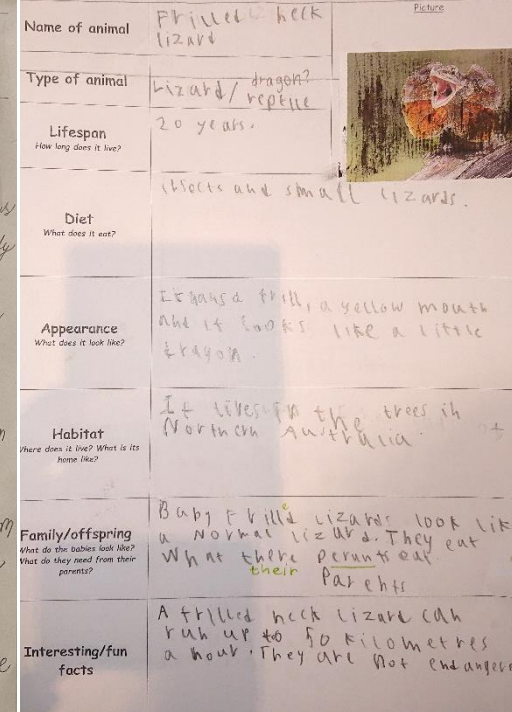 Picture
Name of animal
Frilled neck
lizard
Type of animal
Lizard/ dragon?
reptile
Lifespan
How long does it live?
20 years.
Diet
What does it eat?
insects and small lizards.
Appearance
What does it look like?
It has a frill, a yellow mouth
and it looks like a little
dragon.
Habitat
here does it live? What is its
home like?
It lives in the trees in
Northern Australia.
Family/offspring
What do the babies look like?
What do they need from their
parents?
Baby Frilled Lizards look lik
a Normal lizard. They eat
What there perunts eat.
their
Parents
Interesting/fun
facts
A frilled neck lizard can
run up to 50 kilometres
a hour. They are not endangere